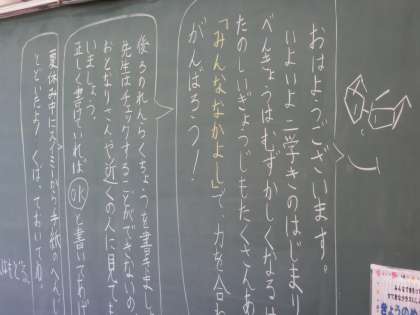 おはようございます。
いよいよ二学きのはじまり
べんきょうはむずかしくなるけ
たのしいぎょうじもたくさんあ
「みんななかよし」で、力を合わ
がんばろう!
後ろのれんらくちょうを書きまし
先生はチェックすることができないの
おとなりさんや近くの人に見ても
いましょう。
正しく書けていれば OK と書いてあげ
夏休み中にスイミーから手紙のへんじ
とどいたよ! くばっておいてね。